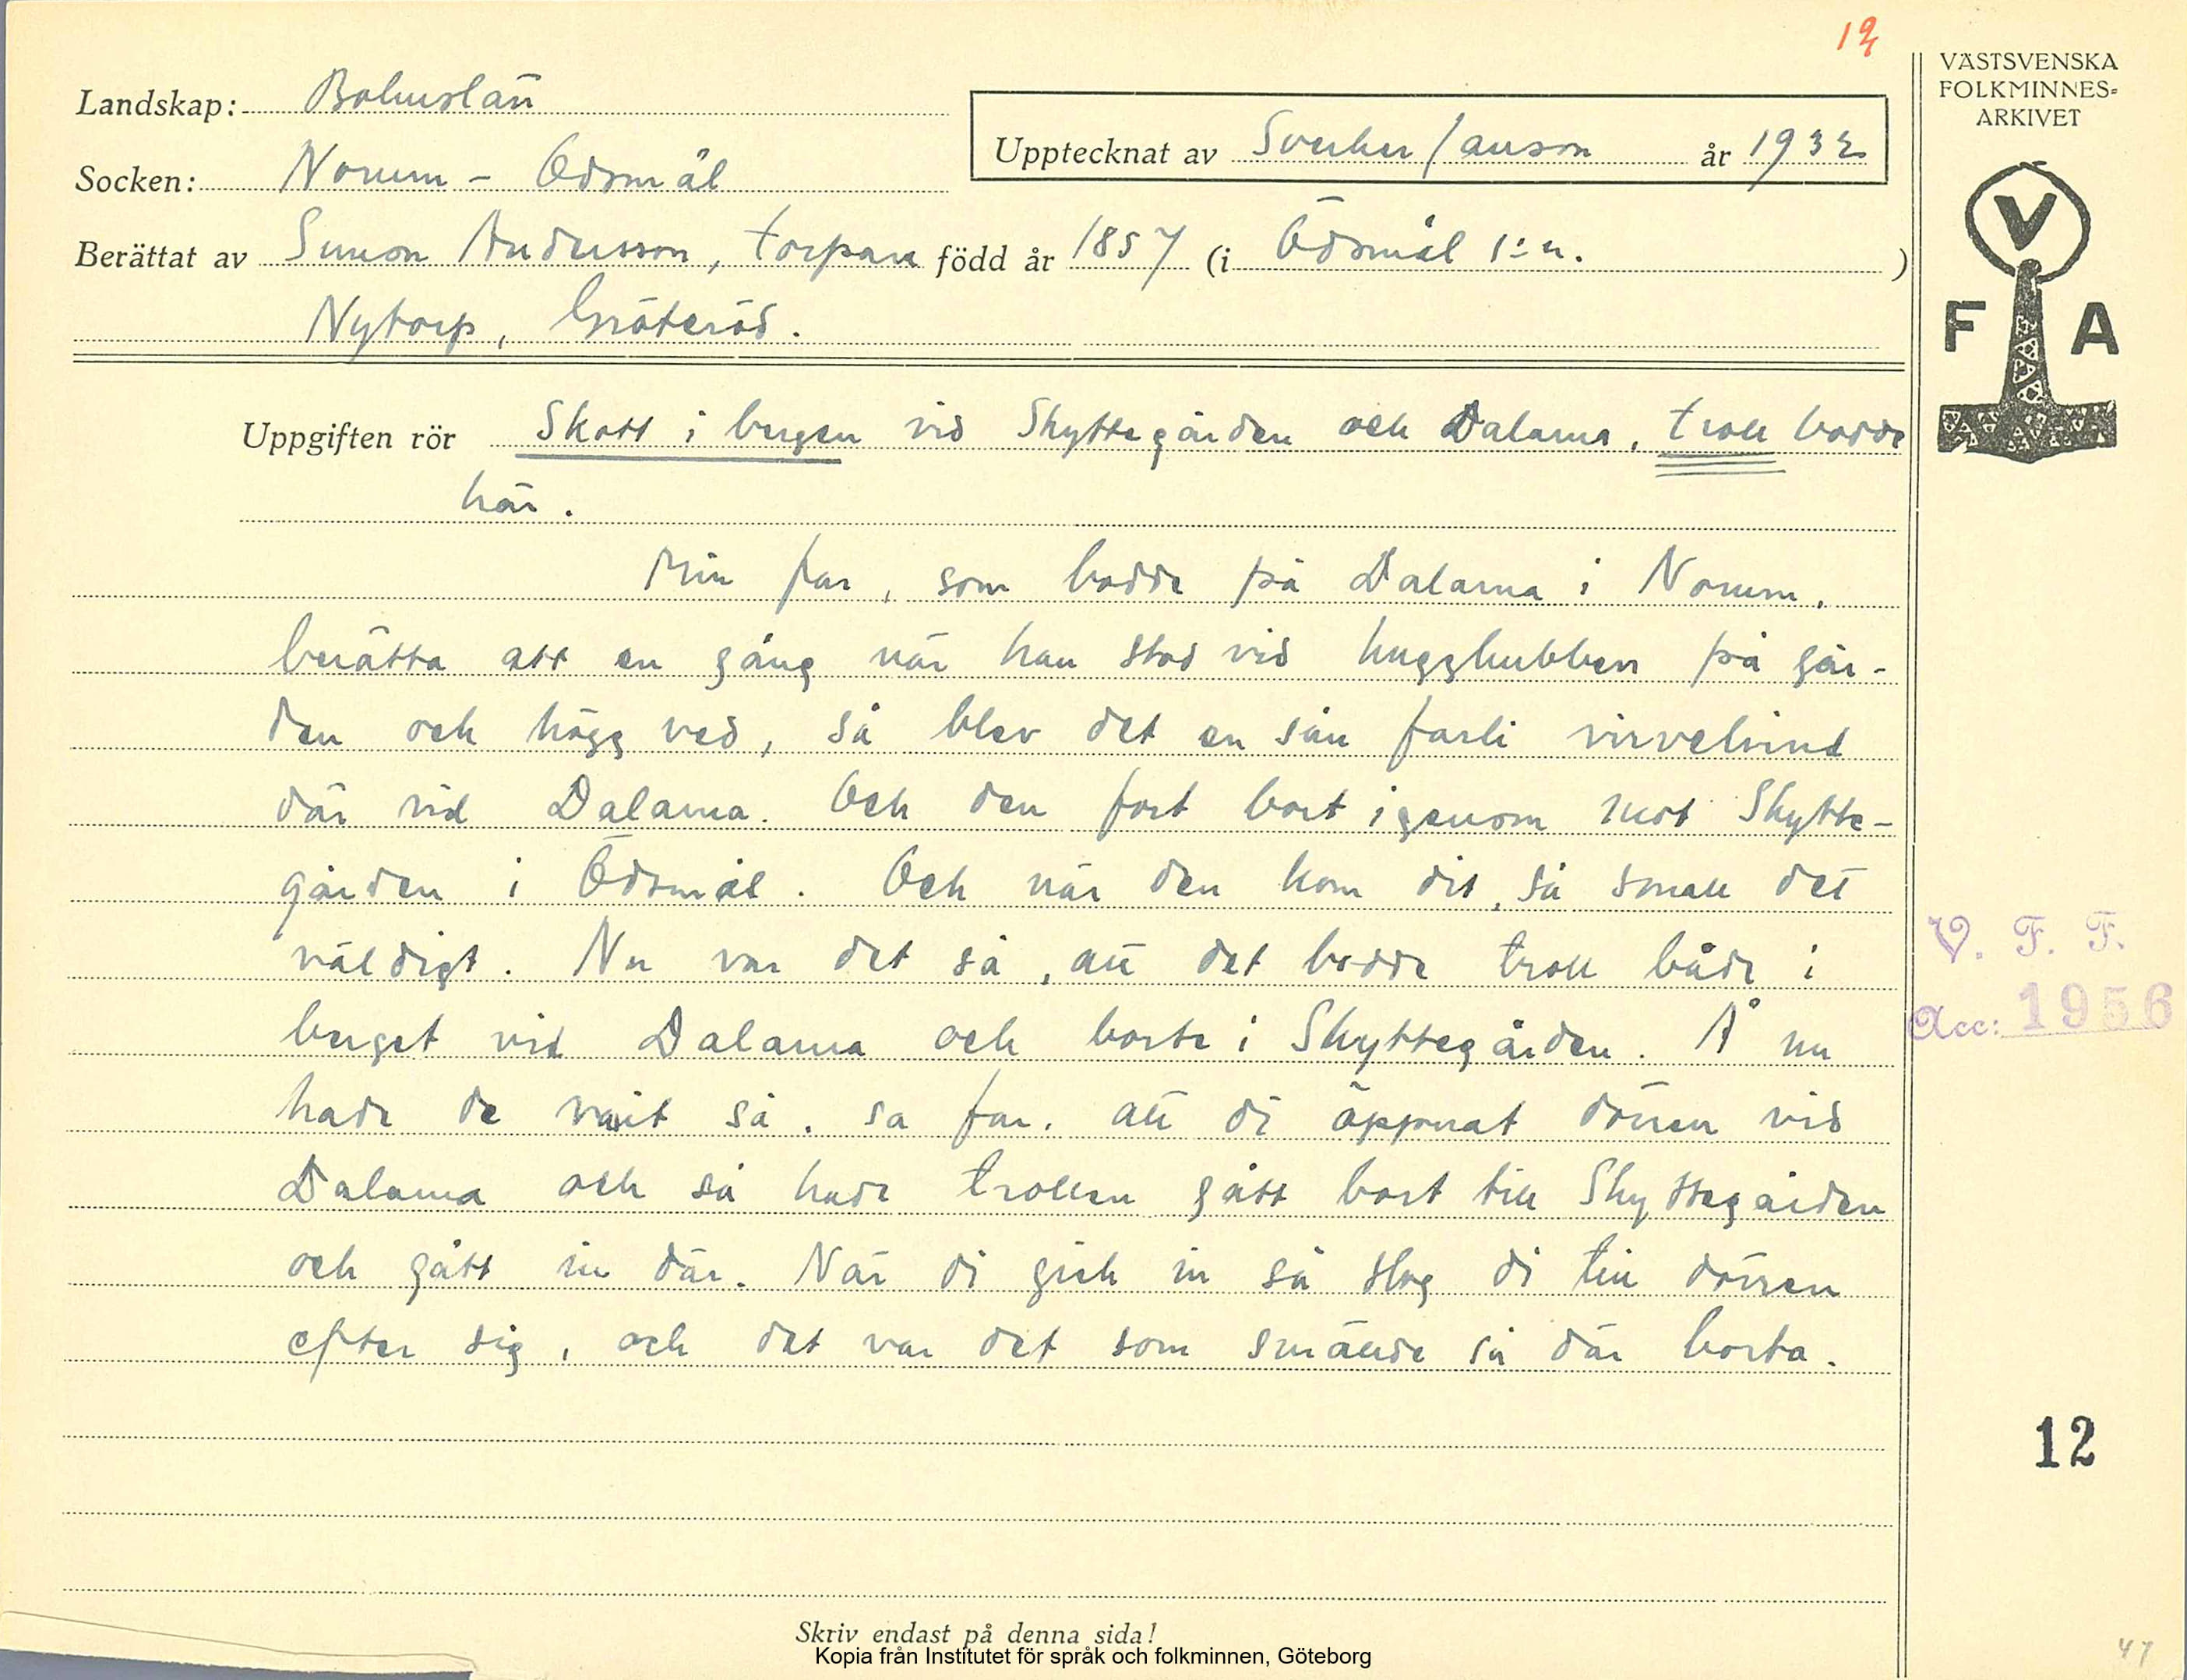 12
VÄSTSVENSKA
FOLKMINNES-
ARKIVET
Landskap: Bohuslän
Upptecknat av Sverker Janson år 1932
Socken: Norum - Ödsmål
Berättat av Simon Andersson, torpare född år 1857 (i Ödsmål s:n.)
Nytorp, Gröteröd.
V
F A
Uppgiften rör Skott i bergen vid Skyttegården och Dalarna, troll bodde
här.
Min far, som bodde på Dalarna i Norum,
berätta att en gång när han stod vid huggkubben på går-
den och högg ved, så blev det en sån farli virvelvind
där vid Dalarna. Och den fort bort igenom mot Skytte-
gården i Ödsmål. Och när den kom dit, så small det
väldigt. Nu var det så, att det bodde troll både i
berget vid Dalarna och borte i Skyttegården. Å nu
hade de vart så, sa far, att di öppnat dörren vid
Dalarna och så hade trollen gått bort till Skyttegården
och gått in där. När di gick in så slog di till dörren
efter sig, och det var det som smällde så där borta.
V. F. F.
Acc: 1956
12
Skriv endast på denna sida!
Kopia från Institutet för språk och folkminnen, Göteborg
47